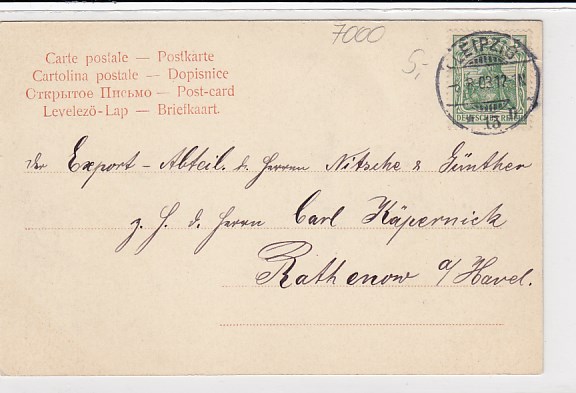 7000
5,-
Carte postale — Postkarte
Cartolina postale -- Dopisnice
Открытое Письмо — Post-card
Levelezö-Lap — Briefkaart.
LEIPZIG
03.12
N
* 13
DEUTSCHES REICH
der Export-Abteil. d. Herren Nitsche & Günther
z. H. d. Herrn Carl Käpernick
Rathenow a/Havel.